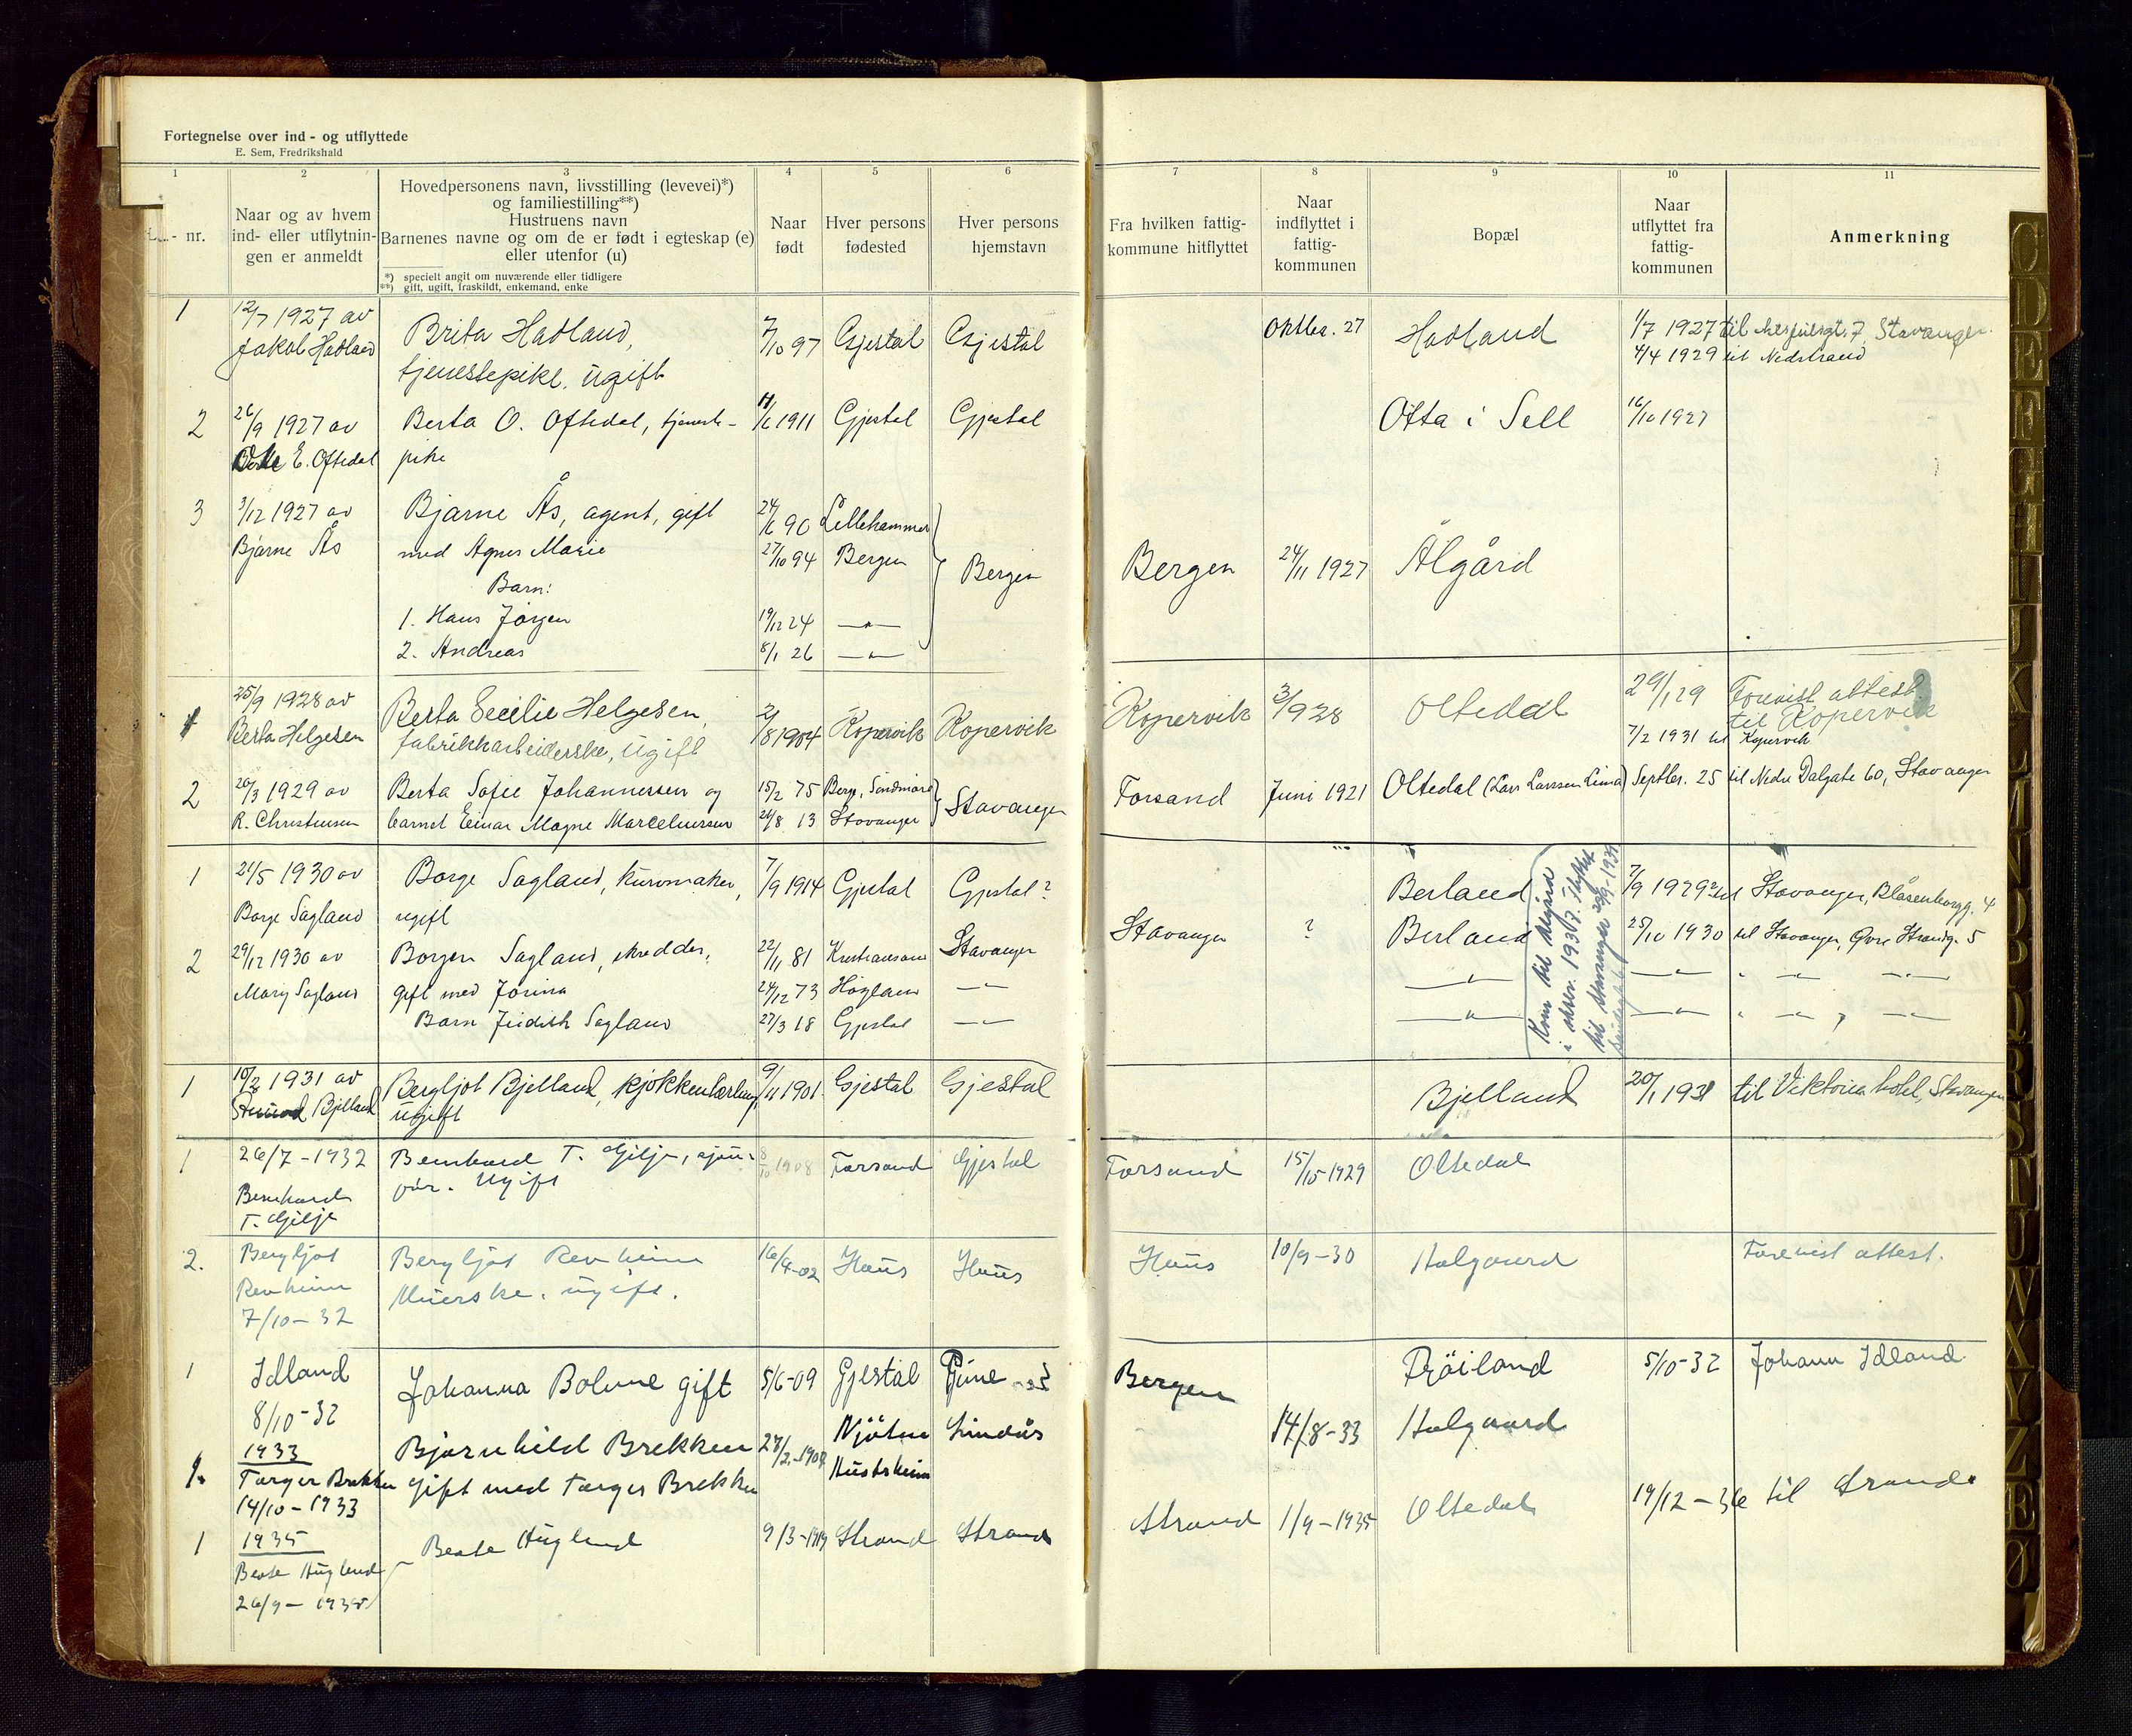 Fortegnelse over ind - og utflyttede
E. Sem, Fredrikshald
1 2 3 4 5 6 7 8 9 10 11
nr.
Naar og av hvem ind- eller utflytnin- gen er anmeldt
Hovedpersonens navn, livsstilling (levevei)*)
og familiestilling**)
Hustruens navn
Barnenes navne og om de er født i egteskap (e)
eller utenfor (u)
*) specielt angit om nuværende eller tidligere
**) gift, ugift, fraskildt, enkemand, enke
Naar født
Hver persons fødested
Hver persons hjemstavn
Fra hvilken fattig- kommune hitflyttet
Naar indflyttet i fattig- kommunen
Bopæl
Naar utflyttet fra fattig- kommunen
Anmerkning
1 12/7 1927 av Brita Hadland, 7/10 97 Gjestal Gjestal Oktbr. 27 Hadland 1/7 1927 til 7, Stavanger.
Jakob Hadland tjenestepike, ugift 4/4 1929 til Nedstrand
2 26/9 1927 av Berta O. Oftedal, tjeneste- 11/6 1911 Gjestal Gjestal Otta i Sell 16/10 1927
E. Oftedal pike
3 3/12 1927 av Bjarne Ås, agent, gift 24/6 90 Lillehammer
Bjarne Ås med Agnes Marie 27/10 94 Bergen Bergen Bergen 24/11 1927 Ålgård
Barn:
1. Hans Jørgen 19/12 24 —"—
2. Andreas 8/1 26 —"—
25/9 1928 av Berta Cecilie Helgesen, 2/8 1904 Kopervik Kopervik Kopervik 3/9 28 Oltedal 29/1 29 Forevist attest.
til Kopervik
Berta Helgesen fabrikkarbeiderske, ugift 7/2 1931 til Kopervik
2 20/3 1929 av Berta Sofie Johannessen og 15/2 75 Berg, Søndmøre Stavanger Forsand Juni 1921 Oltedal (Lars Larssen Lima) Septbr. 25 til Nedre Dalgate 60, Stavanger
R. Christensen barnet Einar Magne Marceliussen 26/8 13 Stavanger
1 21/5 1930 av Borge Sagland, kurvmaker, 7/9 1914 Gjestal Gjestal? Berland 7/9 1929 til Stavanger, Blåsenborgg. 4
Borge Sagland ugift
2 29/12 1930 av Borgen Sagland, skredder, 22/11 81 Kristiansand Stavanger Stavanger ? Berland 25/10 1930 til Stavanger, Øvre Strandg. 5
Mary Sagland gift med Jorina 24/12 73 Høyland —"— —"— —"— " —"— —"—
Barn Judith Sagland 27/3 18 Gjestal —"— —"— —"— " —"— , —"—
Kom til Ålgård
til Stavanger 20/9-1934
1 10/2 1931 av Bergljot Bjelland, kjøkkenlærling, 9/11 1901 Gjestal Gjestal Bjelland 20/1 1931 til Viktoria hotel, Stavanger
Bjelland ugift
1 26/7 - 1932 Bernhard T. Gilje, 8/10 1908 Forsand Gjestal Forsand 15/10-1929 Oltedal
Bernhard ugift
T. Gilje
2. Bergljot Bergljot Revheim 16/4-02 Haus Haus Haus 10/9-30 Hølgaard Forevist attest.
Revheim ugift.
7/10-32
1 Idland Johanna Bolme gift 5/6-09 Gjestal Bergen Frøiland 5/10-32 Johann Idland
8/10-32
1933 Bjørnhild Brekken 27/2-1908 Lindås 14/8-33 Hølgaard
1. Torger Brekken gift med Torger Brekken
14/10-1933
1 1935 Beate Hugland 9/3-1919 Strand Strand Strand 1/9-1935 Oltedal 19/12-36 til Strand
Beate Hugland
26/9-1935
C D E F G H I J K L M N O P Q R S T U W X Y Z Æ Ø